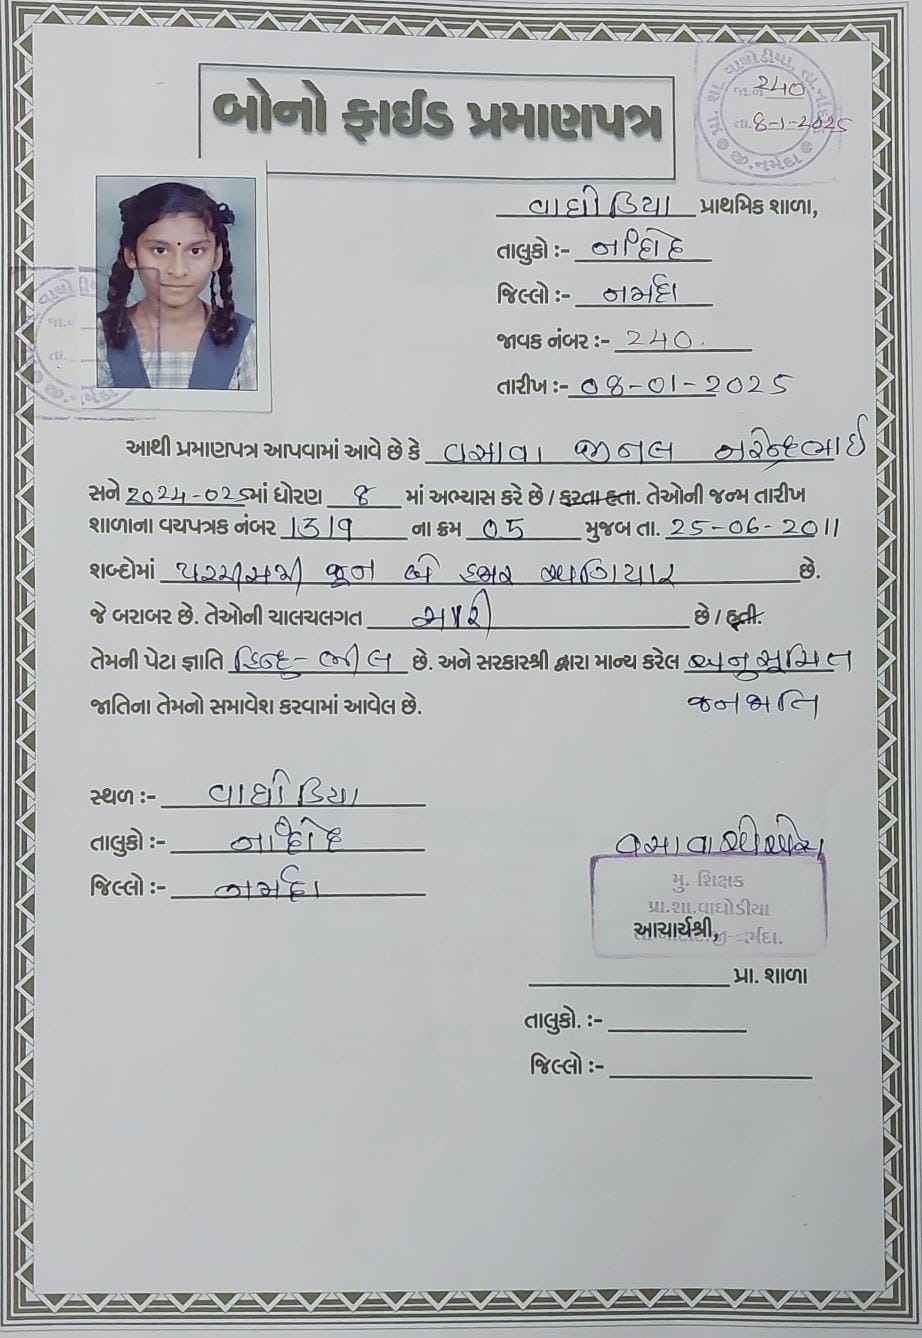 બોનો ફાઈડ પ્રમાણપત્ર
જા.નં 240
તા. 8-1-2025
વાઘોડિયા પ્રાથમિક શાળા,
તાલુકો :- નાંદોદ
જિલ્લો :- નર્મદા
જાવક નંબર :- 240.
તારીખ :- 08-01-2025
આથી પ્રમાણપત્ર આપવામાં આવે છે કે વસાવા જીનલ નરેન્દ્રભાઈ
સને 2024-025માં ધોરણ 8 માં અભ્યાસ કરે છે / કરતા હતા. તેઓની જન્મ તારીખ
શાળાના વયપત્રક નંબર 1319 ના ક્રમ 05 મુજબ તા. 25-06-2011
શબ્દોમાં પચ્ચીસમી જૂન બે હજાર અગિયાર છે.
જે બરાબર છે. તેઓની ચાલચલગત સારી છે / હતી.
તેમની પેટા જ્ઞાતિ હિન્દુ-ભીલ છે. અને સરકારશ્રી દ્વારા માન્ય કરેલ અનુસૂચિત
જનજાતિ
જાતિના તેમનો સમાવેશ કરવામાં આવેલ છે.
સ્થળ :- વાઘોડિયા
તાલુકો :- નાંદોદ
જિલ્લો :- નર્મદા
મુ. શિક્ષક
પ્રા.શા.વાઘોડીયા
આચાર્યશ્રી,
પ્રા. શાળા
તાલુકો. :-
જિલ્લો :-